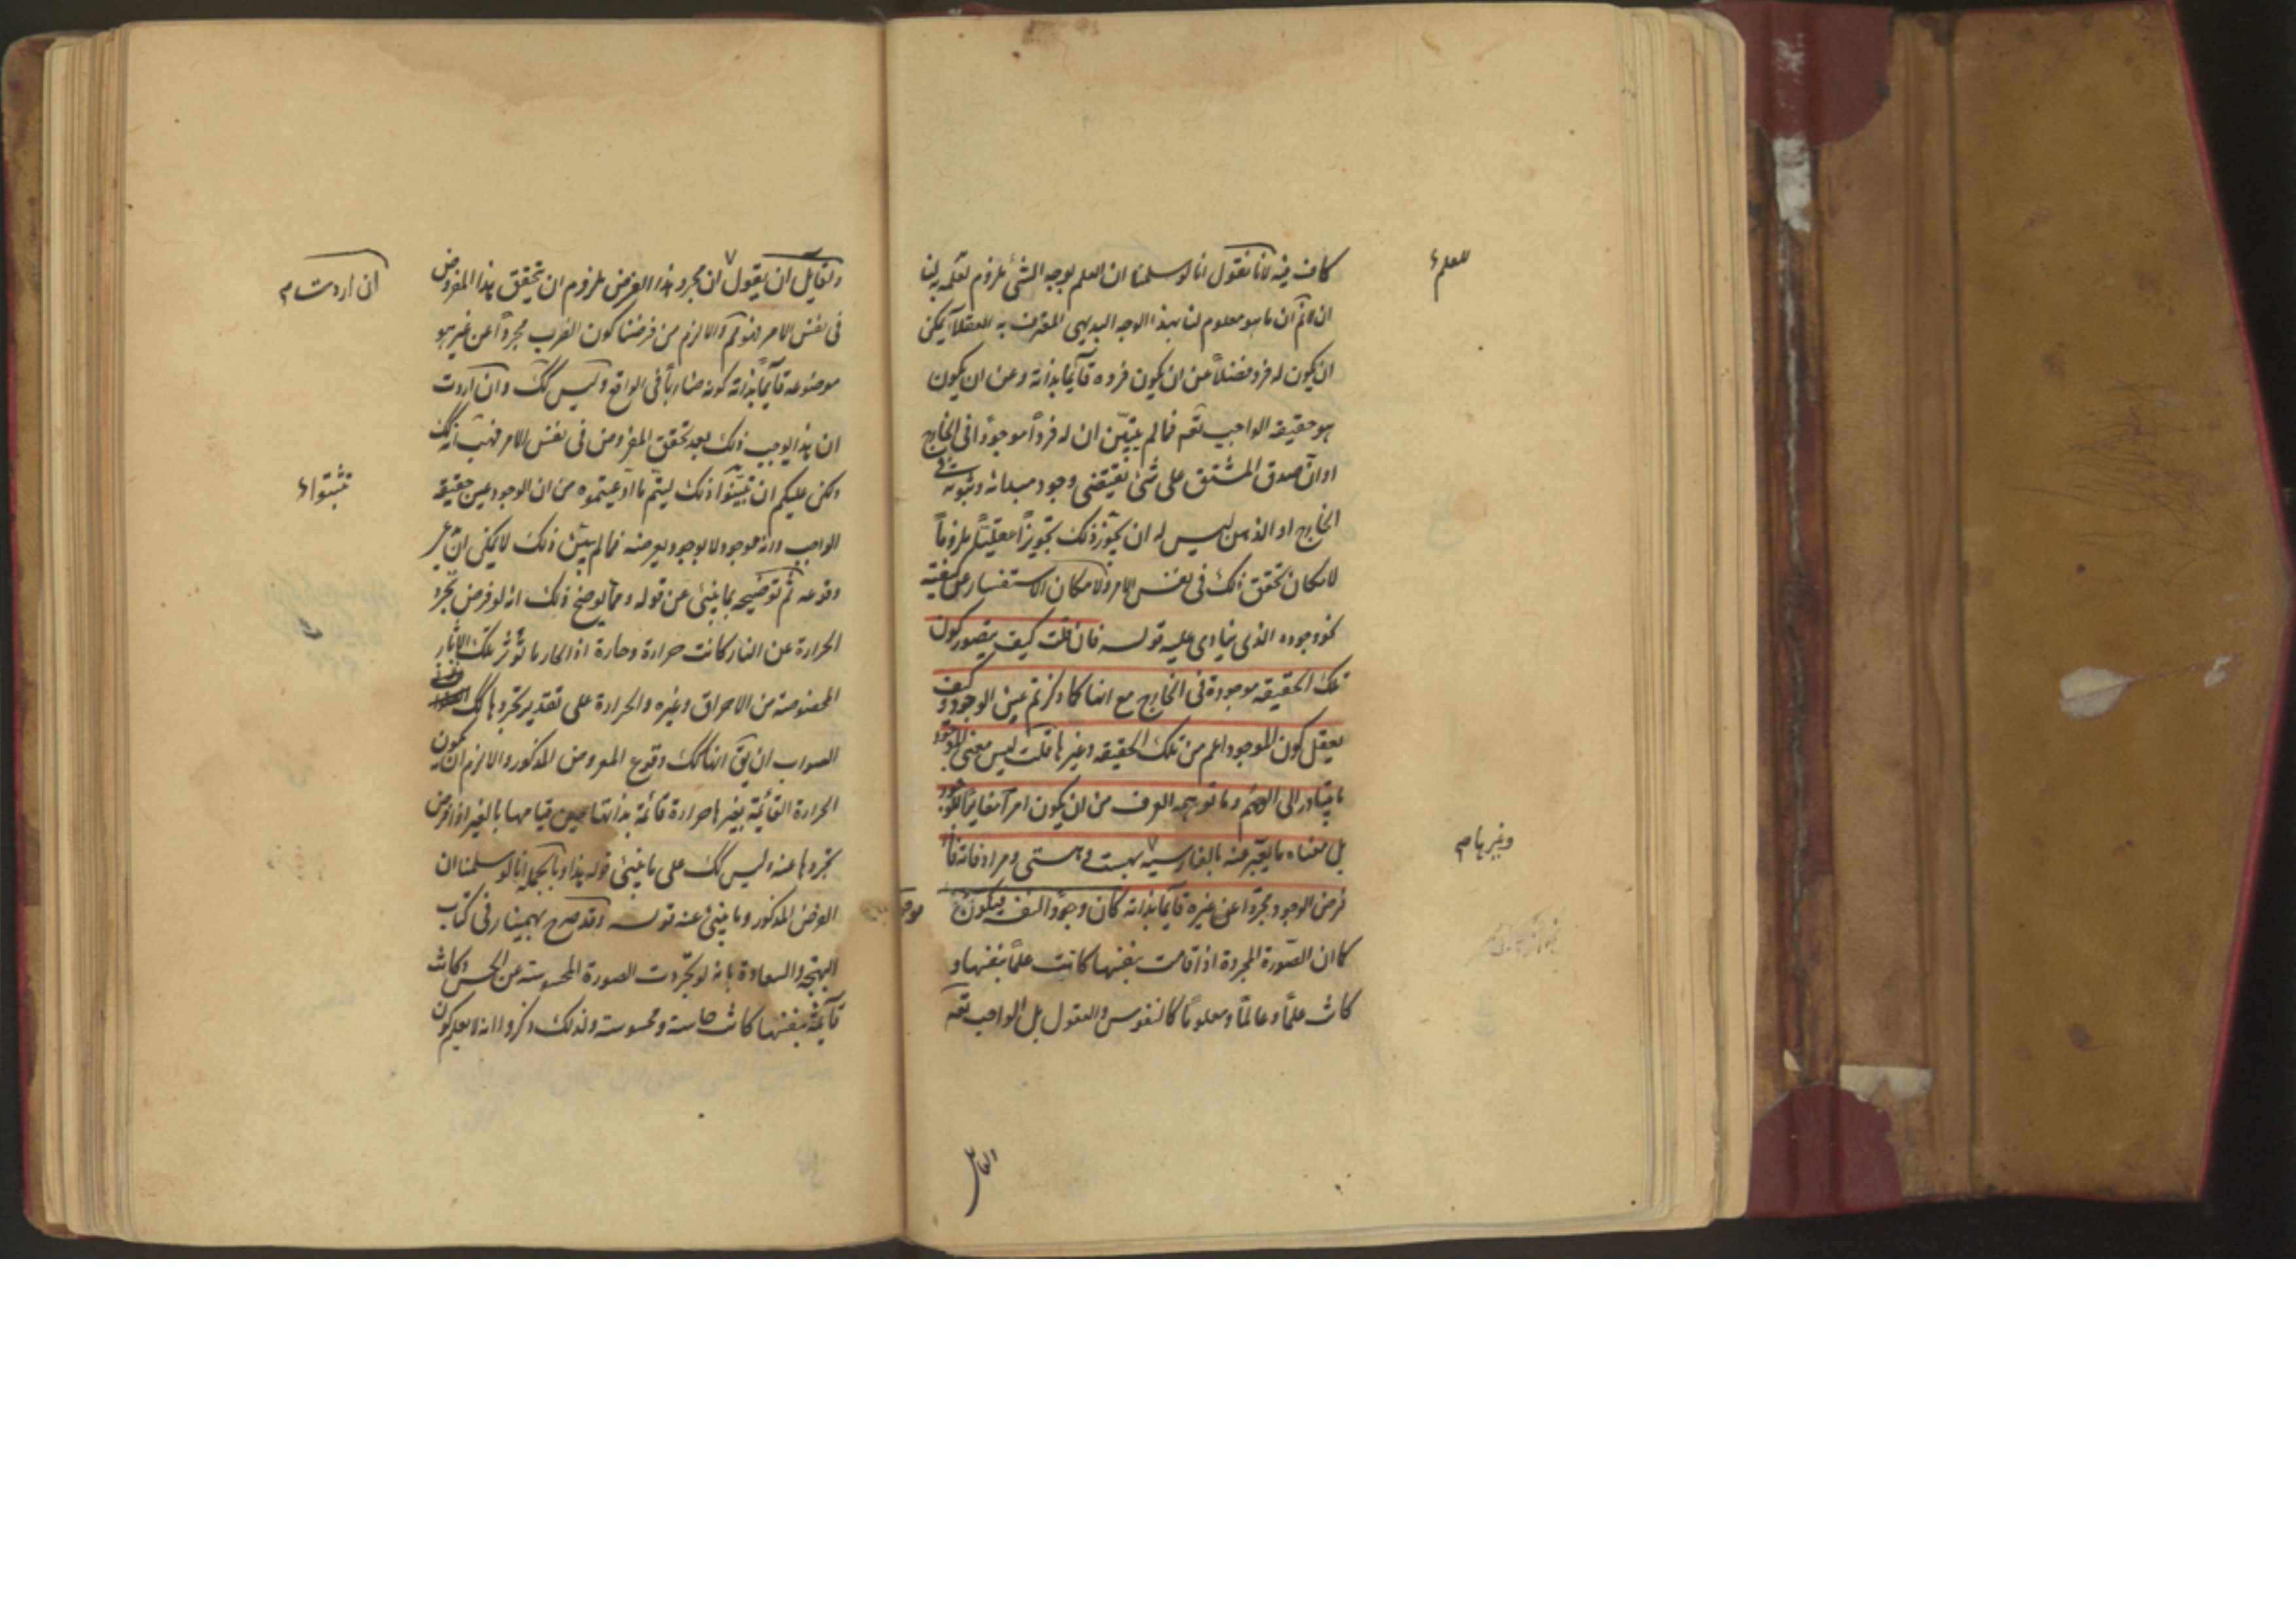 كاف فيه لانا نقول انا لو سلمنا ان العلم بوجه الشئ ملزوم لعلمه به لنا
للعلم
ان لانم ان ما هو معلوم لنا بهذا الوجه البديهى المعترف به العقلاء يمكن
ان يكون له فرد فضلاً عن ان يكون فرده قائما بذاته وعن ان يكون
هو حقيقة الواجب تعه فما لم يتبين ان له فرداً موجوداً فى الخارج
او ان صدق المشتق على شئ يقتضى وجود مبدائه وثبوته فى
الخارج او الذهن ليس له ان يجوز ذلك تجويزاً عقلياً ملزوماً
لامكان تحقق ذلك فى نفس الامر ولامكان الاستفسار عن كيفية
نحو وجوده الذى ينادى عليه قوله فان قلت كيف يتصور كون
تلك الحقيقة موجودة فى الخارج مع انها كما ذكرتم عين الوجود وكيف
يعقل كون الموجود اعم من تلك الحقيقة وغيرها قلت ليس معنى الموجود
ما يتبادر الى الوهم وما توهمه العرف من ان يكون امراً مغايراً للوجود
بل معناه ما يعبر عنه بالفارسية بهست وهستى ومرادفاته فاذا
وغيرها م
فرض الوجود مجرداً عن غيره قائما بذاته كان وجود النفسه فيكون
كما ان الصورة المجردة اذا قامت بنفسها كانت علماً بنفسها و
كانت علماً وعالماً ومعلوماً كالنفوس والعقول بل الواجب تعه
ولقايل ان يقول ان مجرد هذا الفرض ملزوم ان يتحقق هذا المفروض
ان اردت م
فى نفس الامر فهو مم والا لزم من فرضنا كون الضرب مجرداً عن غير هو
موضوعه قائماً بذاته كونه ضارباً فى الواقع وليس كك وان اردت
ان هذا يوجب ذلك بعد تحقق المفروض فى نفس الامر فهب انه كك
ولكن عليكم ان تبينوا ذلك ليتم ما ادعيتموه من ان الوجود عين حقيقة
تثبتوا
الواجب وانه موجود لا بوجود يعرضه فما لم يتبين ذلك لا يمكن ان
وقوعه ثم توضيحه بما ينبئ عن قوله ومما يوضح ذلك انه لو فرض تجرد
الحرارة عن النار كانت حرارة وحارة اذ الحار ما تؤثر تلك الآثار
المخصوصة من الاحراق وغيره والحرارة على تقدير تجردها كك
الصواب ان يق انها كك وقوع المفروض المذكور والا لزم ان يكون
الحرارة القائمة بغيرها حرارة قائمة بذاتها حين قيامها بالغير اذا فرض
تجردها عنه وليس كك على ما ينبئ قوله هذا وبالجملة انا لو سلمنا ان
الفرض المذكور وما ينبئ عنه قوله وقد صرح بهمنيار فى كتاب
البهجة والسعادة بانه لو تجردت الصورة المحسوسة عن الحس وكانت
قائمة بنفسها كانت حاسة ومحسوسة ولذلك ذكروا انه لا يعلم كون